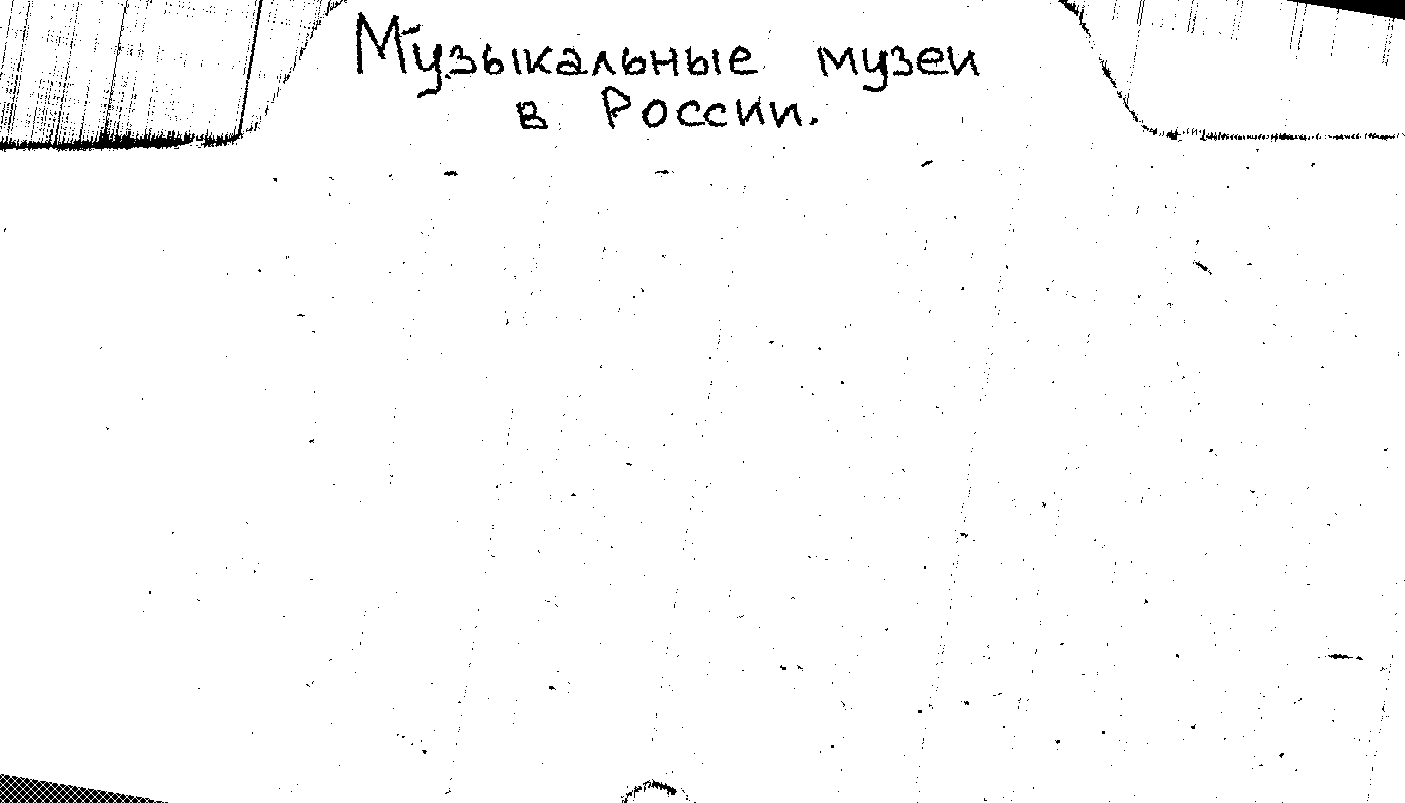 Музыкальные музеи
в России.